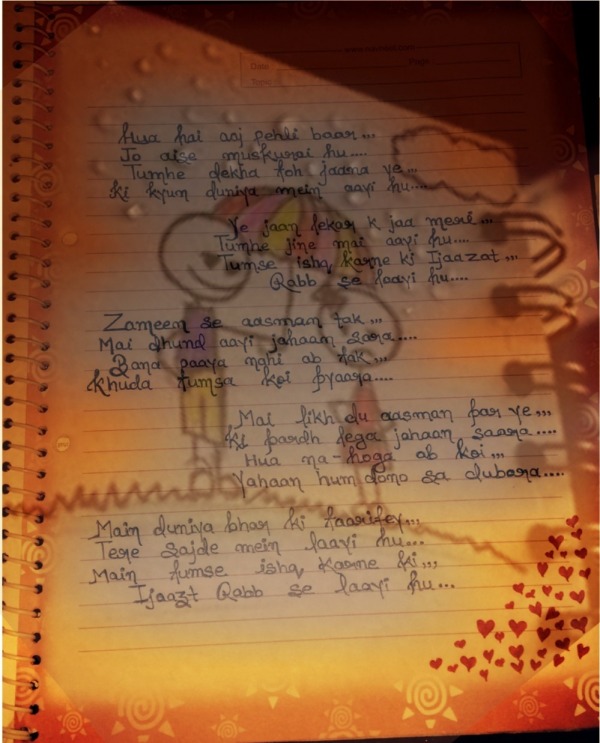 Date
Page
Hua hai aaj pehli baar,,,
Jo aise muskurai hu....
Tumhe dekha toh jaana ye...
ki kyun duniya mein aayi hu....
Ye jaan lekar k jaa meri...
Tumhe jine mai aayi hu....
Tumse ishq karne ki Ijaazat,,,
Rabb se laayi hu....
Zameen se aasman tak,,,
Mai dhund aayi jahaan sara....
Bana paaya nahi ab tak,,,
khuda tumsa koi pyaara....
Mai likh du aasman par ye,,,
ki pardh lega jahaan saara....
Hua na-hoga ab koi,,,
Yahaan hum dono sa dubara....
Main duniya bhar ki taarifey,,,
Tere sajde mein laayi hu...
Main tumse ishq karne ki,,,
Ijaazt Rabb se laayi hu...